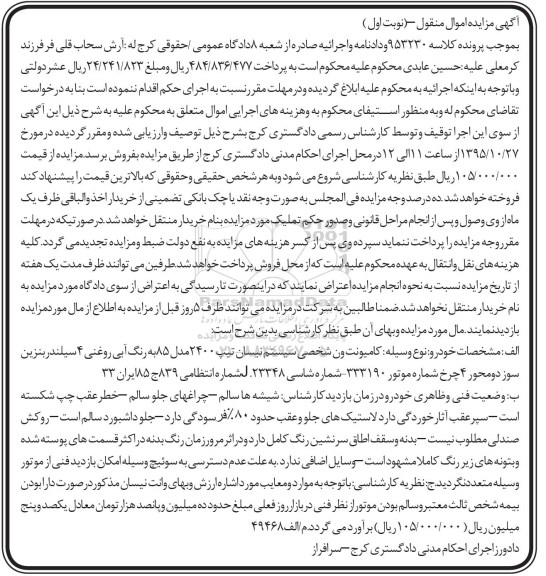 آگهی مزایده اموال منقول –(نوبت اول )
بموجب پرونده کلاسه ۹۵۳۲۳۰ ودادنامه واجرائیه صادره از شعبه ۸دادگاه عمومی /حقوقی کرج له :آرش سحاب قلی فر فرزند
کرمعلی علیه :حسین عابدی محکوم علیه محکوم است به پرداخت ۴۸۴/۸۳۶/۴۷۷ریال ومبلغ ۲۴/۲۴۱/۸۲۳ریال عشردولتی
وباتوجه به اینکه اجرائیه به محکوم علیه ابلاغ گردیده ودر مهلت مقرر نسبت به اجرای حکم اقدام ننموده است بنا به درخواست
تقاضای محکوم له وبه منظور استیفای محکوم به وهزینه های اجرایی اموال متعلق به محکوم علیه به شرح ذیل این آگهی
از سوی این اجرا توقیف وتوسط کارشناس رسمی دادگستری کرج بشرح ذیل توصیف وارزیابی شده ومقرر گردیده درمورخ
۱۳۹۵/۱۰/۲۷از ساعت ۱۱الی ۱۲ درمحل اجرای احکام مدنی دادگستری کرج از طریق مزایده بفروش برسد.مزایده از قیمت
۱۰۵/۰۰۰/۰۰۰ریال طبق نظریه کارشناسی شروع می شود وبه هر شخص حقیقی وحقوقی که بالاترین قیمت را پیشنهاد کند
فروخته خواهد شد .ده درصد وجه مزایده فی المجلس به صورت وجه نقد یا چک بانکی تضمینی از خریدار اخذ والباقی ظرف یک
ماه از وی وصول و پس از انجام مراحل قانونی وصدور حکم تملیک مورد مزایده بنام خریدار منتقل خواهد شد.در صورتیکه در مهلت
مقرر وجه مزایده را پرداخت ننماید سپرده وی پس از کسر هزینه های مزایده به نفع دولت ضبط ومزایده تجدید می گردد .کلیه
هزینه های نقل وانتقال به عهده محکوم علیه است که از محل فروش پرداخت خواهد شد.طرفین می توانند ظرف مدت یک هفته
از تاریخ مزایده نسبت به نحوه انجام مزایده اعتراض نمایند که دراینصورت تا رسیدگی به اعتراض از سوی دادگاه مورد مزایده به
نام خریدار منتقل نخواهد شد.ضمنا طالبین به شرکت در مزایده می توانند ظرف ۵روز قبل از مزایده به اطلاع از مال مورد مزایده
بازدیدنمایند .مال مورد مزایده وبهای آن طبق نظر کارشناسی بدین شرح است:
الف :مشخصات خودرو:نوع وسیله :کامیونت ون شخصی سیستم نیسان تیپ ۲۴۰۰مدل ۸۵به رنگ آبی روغنی ۴سیلندر بنزین
سوز دو محور ۴چرخ شماره موتور ۳۳۳۱۹۰–شماره شاسی ۲۳۳۴۸ Jشماره انتظامی ۸۳۹ج ۸۵ایران ۳۳
ب: وضعیت فنی وظاهری خودرو درزمان بازدید کارشناس: شیشه ها سالم –چراغهای جلو سالم –خطر عقب چپ شکسته
است –سپر عقب آثار خوردگی دارد لاستیک های جلو وعقب حدود ۸۰٪فرسودگی دارد –جلو داشبورد سالم است – روکش
صندلی مطلوب نیست –بدنه وسقف اطاق سرنشین رنگ کامل دارد ودر اثر مرور زمان رنگ بدنه در اکثر قسمت های پوسته شده
وبتونه های زیر رنگ کاملا مشهود است –وسایل اضافی ندارد .به علت عدم دسترسی به سوئیچ وسیله امکان بازدید فنی از موتور
وسیله متعدد نگردید.ج: نظریه کارشناسی: باتوجه به موارد ومعایب مورد اشاره ارزش وبهای وانت نیسان مذکور درصورت دارا بودن
بیمه شخص ثالث معتبر وسالم بودن موتور از نظر فنی در بازار روز فعلی مبلغ حدود ده میلیون وپانصد هزار تومان معادل یکصد وپنج
میلیون ریال ( ۱۰۵/۰۰۰/۰۰۰ ریال )بر آورد می گردد.م/الف ۴۹۴۶۸
دادورز اجرای احکام مدنی دادگستری کرج –سرافراز